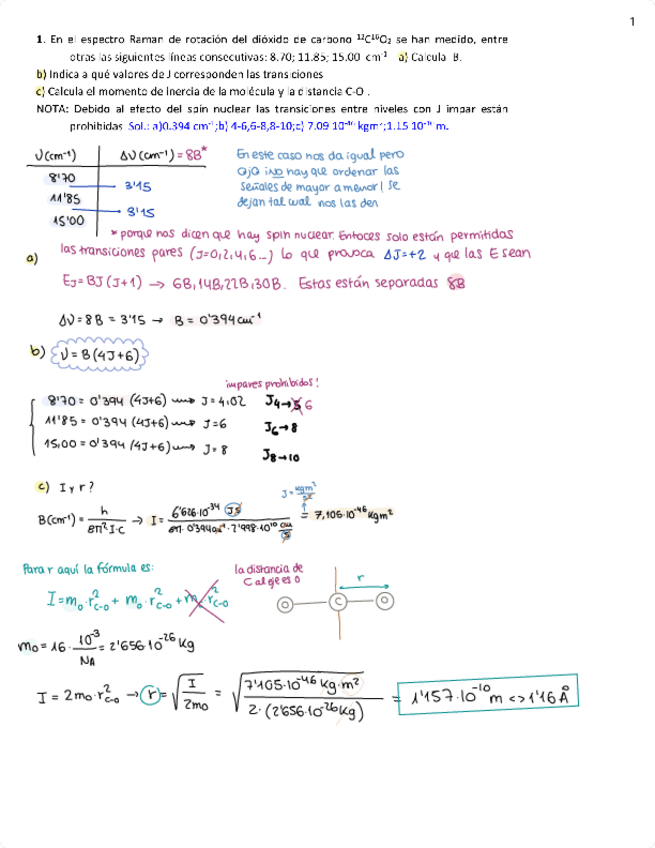 1
1. En el espectro Raman de rotación del dióxido de carbono ¹²C¹⁶O₂ se han medido, entre
otras las siguientes líneas consecutivas: 8.70; 11.85; 15.00 cm⁻¹ a) Calcula B.
b) Indica a qué valores de J corresponden las transiciones
c) Calcula el momento de inercia de la molécula y la distancia C-O .
NOTA: Debido al efecto del spin nuclear las transiciones entre niveles con J impar están
prohibidas Sol.: a)0.394 cm⁻¹;b) 4-6,6-8,8-10;c) 7.09 10⁻⁴⁶ kgm²;1.15 10⁻¹⁰ m.
ν(cm⁻¹) Δν(cm⁻¹) = 8B*
8'70
3'15
11'85
3'15
15'00
En este caso nos da igual pero
OJO ¡NO hay que ordenar las
señales de mayor a menor! se
dejan tal cual nos las den
* porque nos dicen que hay spin nuclear. Entoces solo están permitidas
a) las transiciones pares (J=0,2,4,6...) lo que provoca ΔJ=+2 y que las E sean
EJ = BJ(J+1) → 6B, 14B, 22B, 30B. Estas están separadas 8B
Δν = 8B = 3'15 → B = 0'394 cm⁻¹
b) ν = B(4J+6)
impares prohibidos!
8'70 = 0'394 (4J+6) → J = 4,02 J4→5 6
11'85 = 0'394 (4J+6) → J=6 J6→8
15,00 = 0'394 (4J+6) → J=8 J8→10
c) I y r?
J = kgm²/s²
B(cm⁻¹) = h/8π²I·C → I = 6'626·10⁻³⁴ JS / 8π· 0'394cm⁻¹ · 2'998·10¹⁰ cm/s = 7,105·10⁻⁴⁶ kgm²
Para r aquí la fórmula es:
la distancia de
C al eje es 0
r
I = mo·r²c-o + mo·r²c-o + mc·r²c-o
O C O
mo = 16 · 10⁻³/NA = 2'656·10⁻²⁶ kg
I = 2mo·r²c-o → r = √(I/2mo) = √(7'105·10⁻⁴⁶ kg·m² / 2·(2'656·10⁻²⁶ kg)) = 1'157·10⁻¹⁰ m <> 1'16 Å